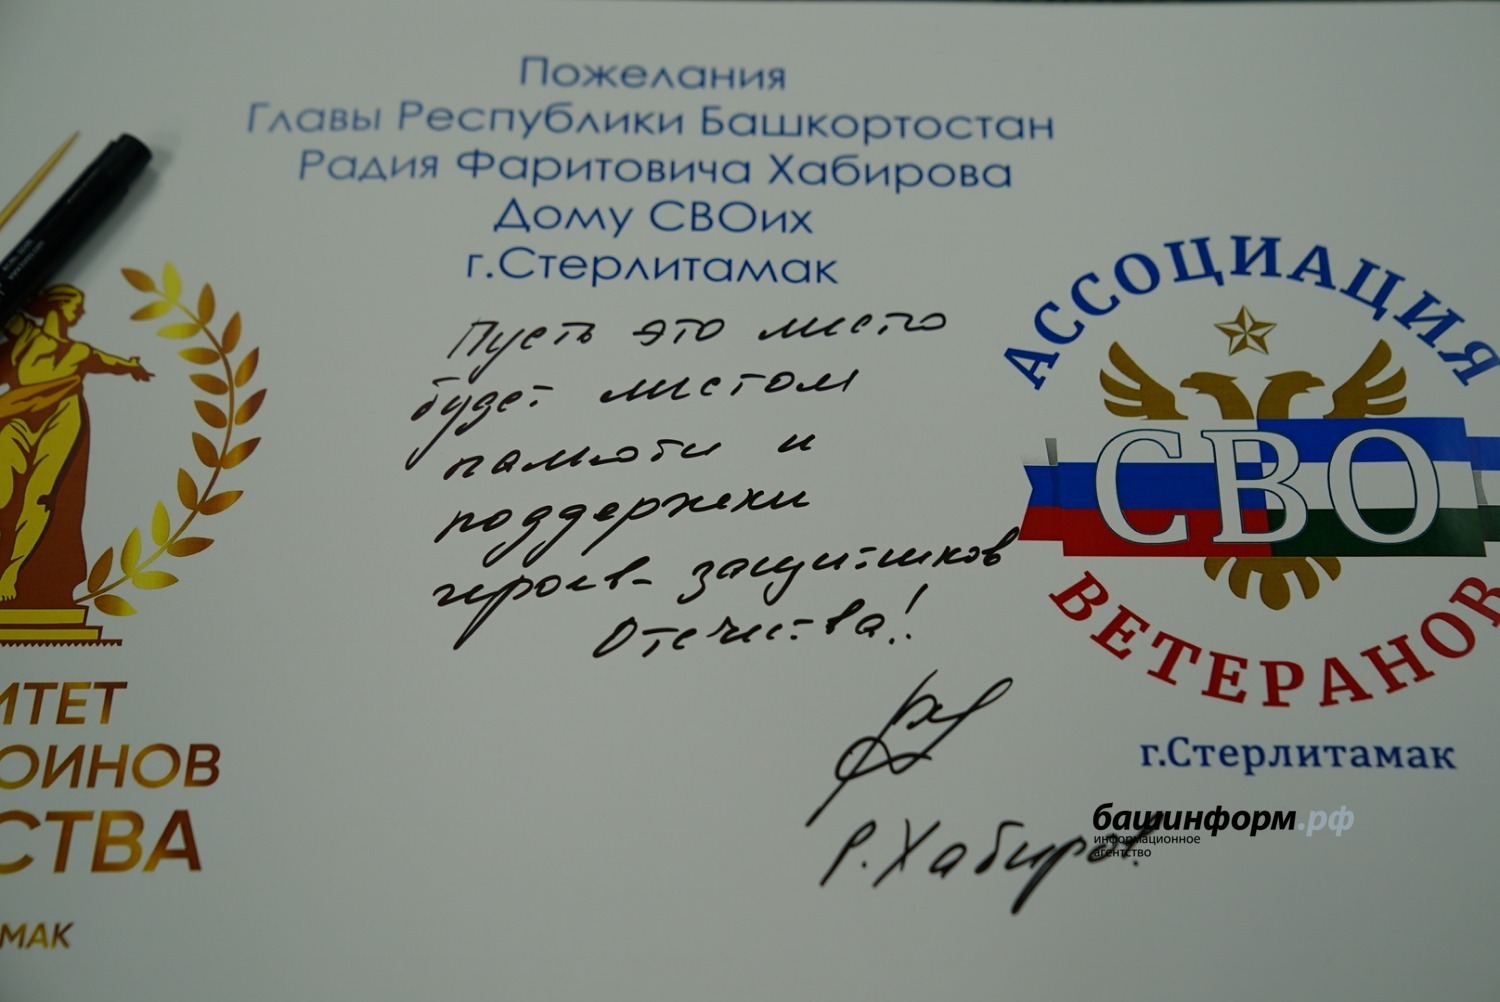 Пожелания
Главы Республики Башкортостан
Радия Фаритовича Хабирова
Дому СВОих
г.Стерлитамак
Пусть это место
будет местом
памяти и
поддержки
героев - защитников
Отечества!
Р. Хабиров
АССОЦИАЦИЯ
СВО
ВЕТЕРАНОВ
г.Стерлитамак
ИТЕТ
ОИНОВ
СТВА
МАК
башинформ.рф
информационное
агентство